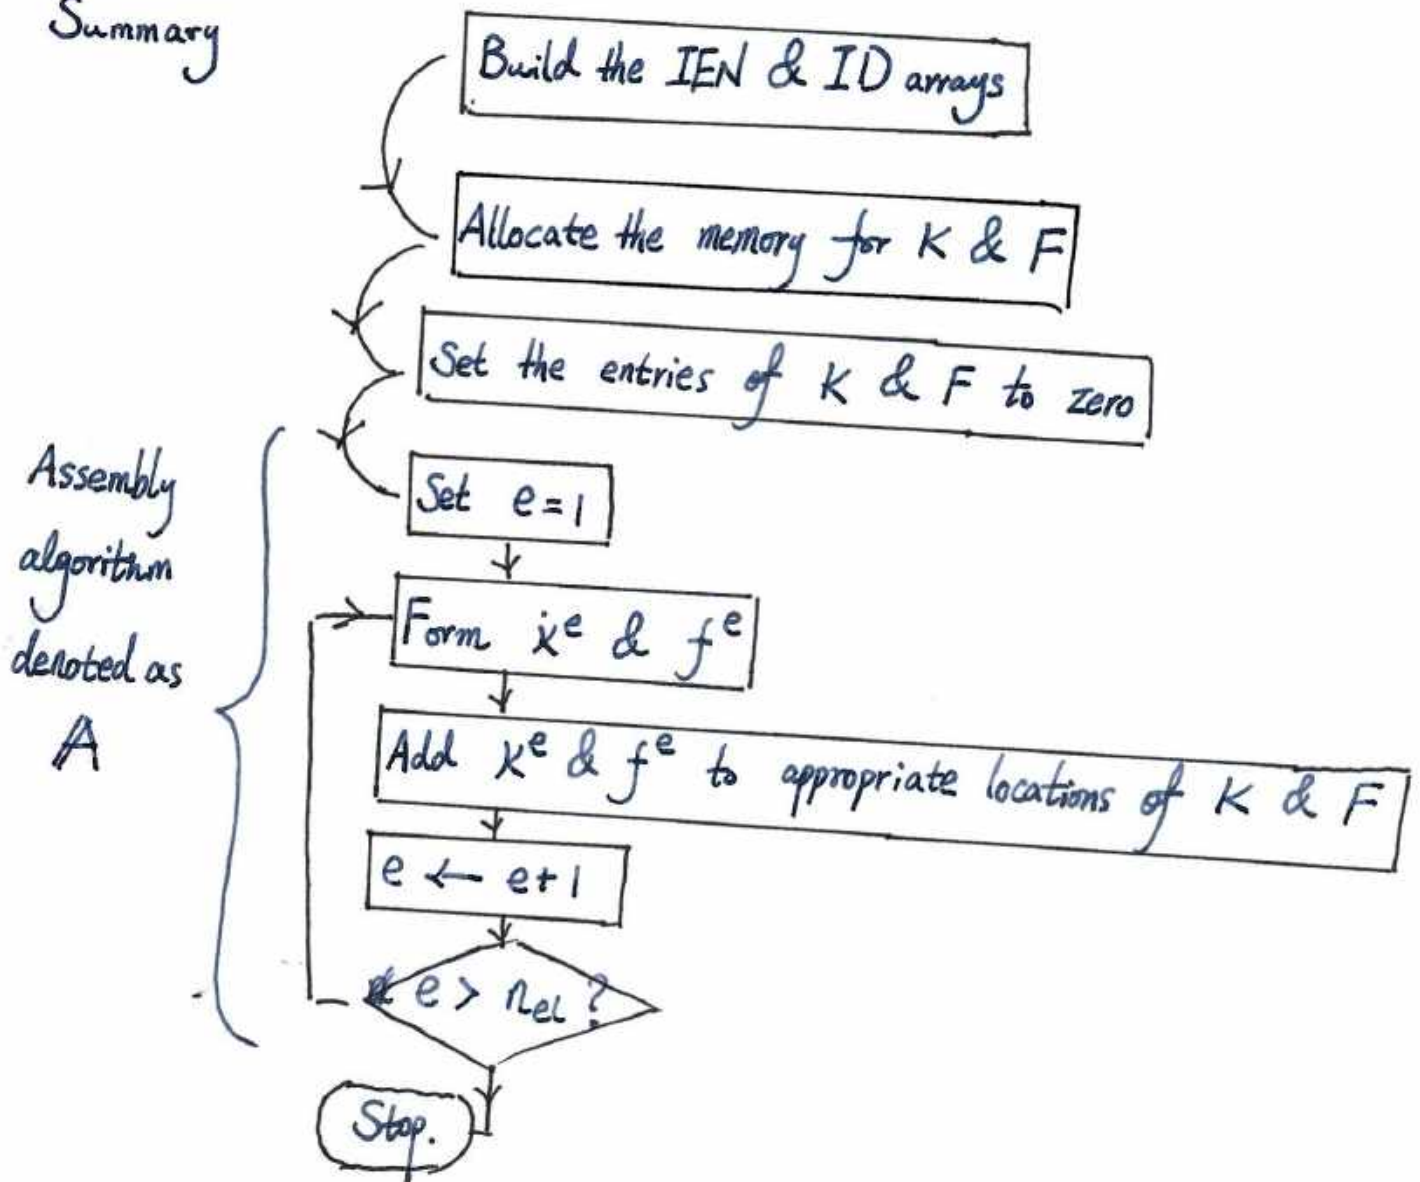 Summary
Build the IEN & ID arrays
Allocate the memory for K & F
Set the entries of K & F to zero
Set e=1
Assembly
algorithm
denoted as
A
Form k^e & f^e
Add k^e & f^e to appropriate locations of K & F
e ← e+1
e > n_el ?
Stop.